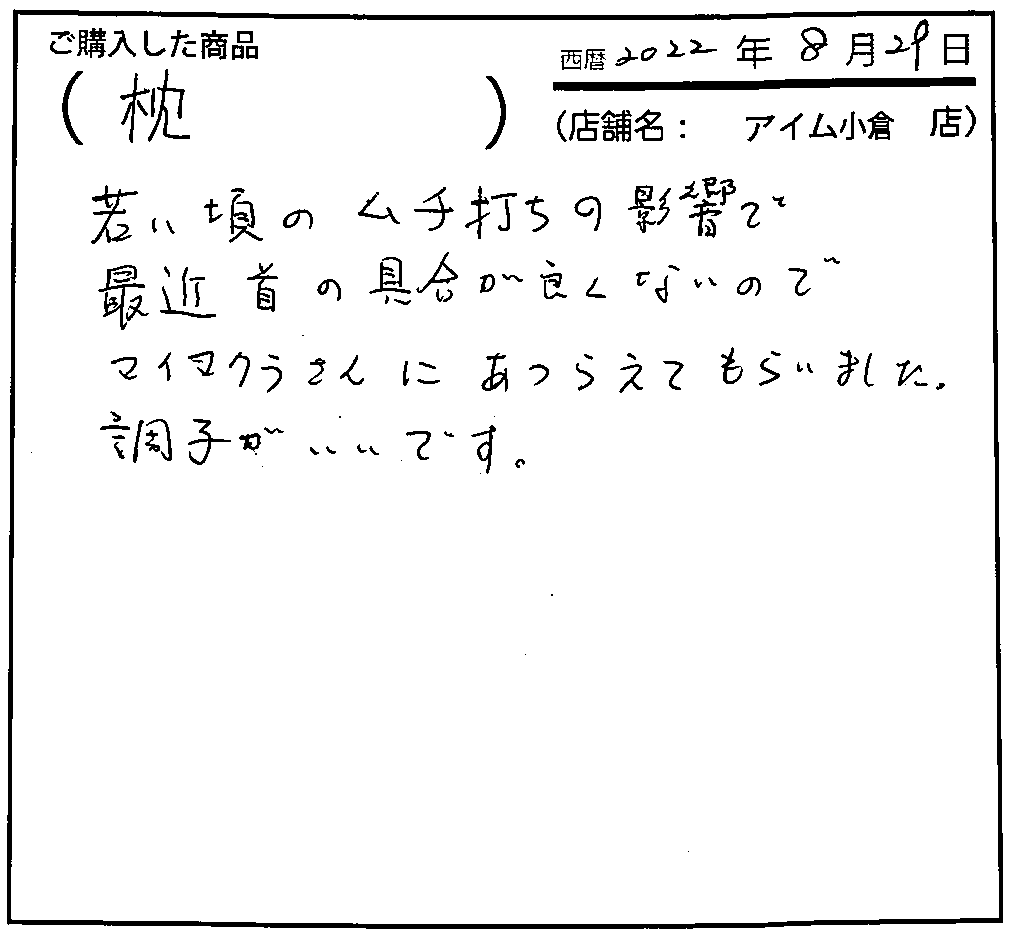 ご購入した商品
(枕)
西暦 2022 年 8 月 29 日
(店舗名: アイム小倉 店)
若い頃のムチ打ちの影響で
最近首の具合が良くないので
マイマクラさんにあつらえてもらいました。
調子がいいです。